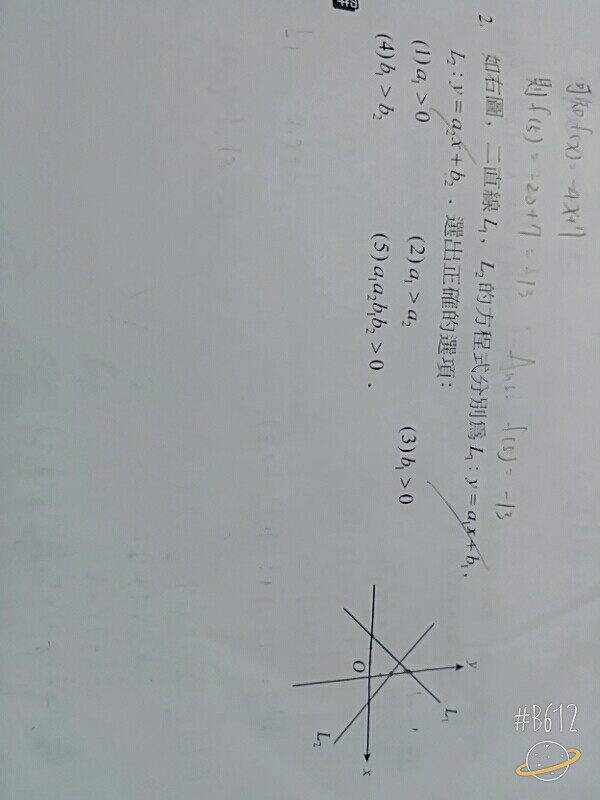 可知 f(x) = -4x+7
則 f(5) = -20+7 = -13 Ans: f(5) = -13
2. 如右圖，二直線 L₁、L₂ 的方程式分別為 L₁: y = a₁x + b₁，
L₂: y = a₂x + b₂．選出正確的選項：
(1) a₁ > 0 (2) a₁ > a₂ (3) b₁ > 0
(4) b₁ > b₂ (5) a₁a₂b₁b₂ > 0．
解
L₁
y
L₁
O
x
L₂
#B612